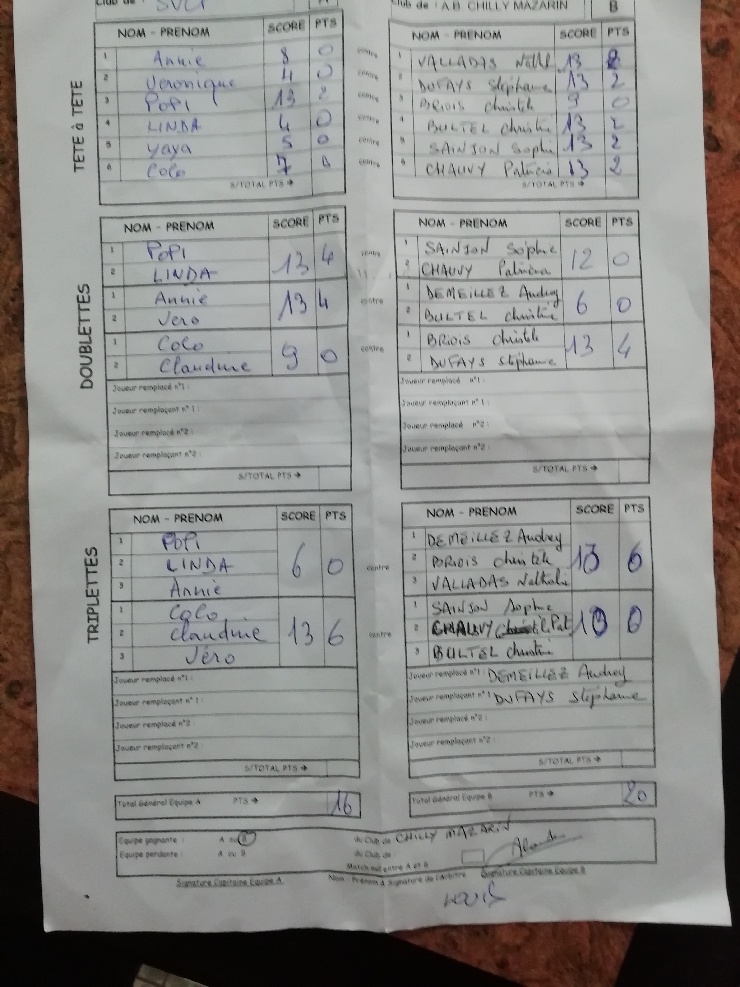 Club de : SVCP A
Club de : A.B CHILLY MAZARIN B
TETE à TETE
NOM - PRENOM SCORE PTS
1 Annie 8 0 contre
2 Veronique 4 0 contre
3 POPI 13 2 contre
4 LINDA 4 0 contre
5 Yaya 5 0 contre
6 Colo 7 contre
S/TOTAL PTS →
NOM - PRENOM SCORE PTS
1 VALLADAS 13 2
2 DUFAYS Stéphanie 13 2
3 BRIOIS Christèle 9 0
4 BULTEL Christine 13 2
5 SAINJON Sophie 13 2
6 CHAUVY Patricia 13 2
S/TOTAL PTS →
DOUBLETTES
NOM - PRENOM SCORE PTS
1 POPI
2 LINDA 13 4 contre
1 Annie
2 Vero 13 4 contre
1 Colo
2 Claudine 9 0 contre
Joueur remplacé n°1 :
Joueur remplaçant n° 1 :
Joueur remplacé n°2 :
Joueur remplaçant n°2 :
S/TOTAL PTS →
NOM - PRENOM SCORE PTS
1 SAINJON Sophie
2 CHAUVY Patricia 12 0
1 DEMEILLEZ Audrey
2 BULTEL Christine 6 0
1 BRIOIS Christèle
2 DUFAYS Stéphanie 13 4
Joueur remplacé n°1 :
Joueur remplaçant n° 1 :
Joueur remplacé n°2 :
Joueur remplaçant n°2 :
S/TOTAL PTS →
TRIPLETTES
NOM - PRENOM SCORE PTS
1 POPI
2 LINDA 6 0 contre
3 Annie
1 Colo
2 Claudine 13 6 contre
3 Véro
Joueur remplacé n°1 :
Joueur remplaçant n° 1 :
Joueur remplacé n°2 :
Joueur remplaçant n°2 :
S/TOTAL PTS →
NOM - PRENOM SCORE PTS
1 DEMEILLEZ Audrey
2 BRIOIS Christèle 13 6
3 VALLADAS Nathalie
1 SAINJON Sophie
2 CHAUVY Pat 10 0
3 BULTEL Christine
Joueur remplacé n°1 : DEMEILLEZ Audrey
Joueur remplaçant n° 1 DUFAYS Stéphanie
Joueur remplacé n°2 :
Joueur remplaçant n°2 :
S/TOTAL PTS →
Total Général Equipe A PTS → 16
Total Général Equipe B PTS → 20
Equipe gagnante : A ou B du Club de CHILLY MAZARIN
Equipe perdante : A ou B du Club de :
Match nul entre A et B
Signature Capitaine Equipe A
Nom - Prénom & Signature de l'Arbitre
Signature Capitaine Equipe B